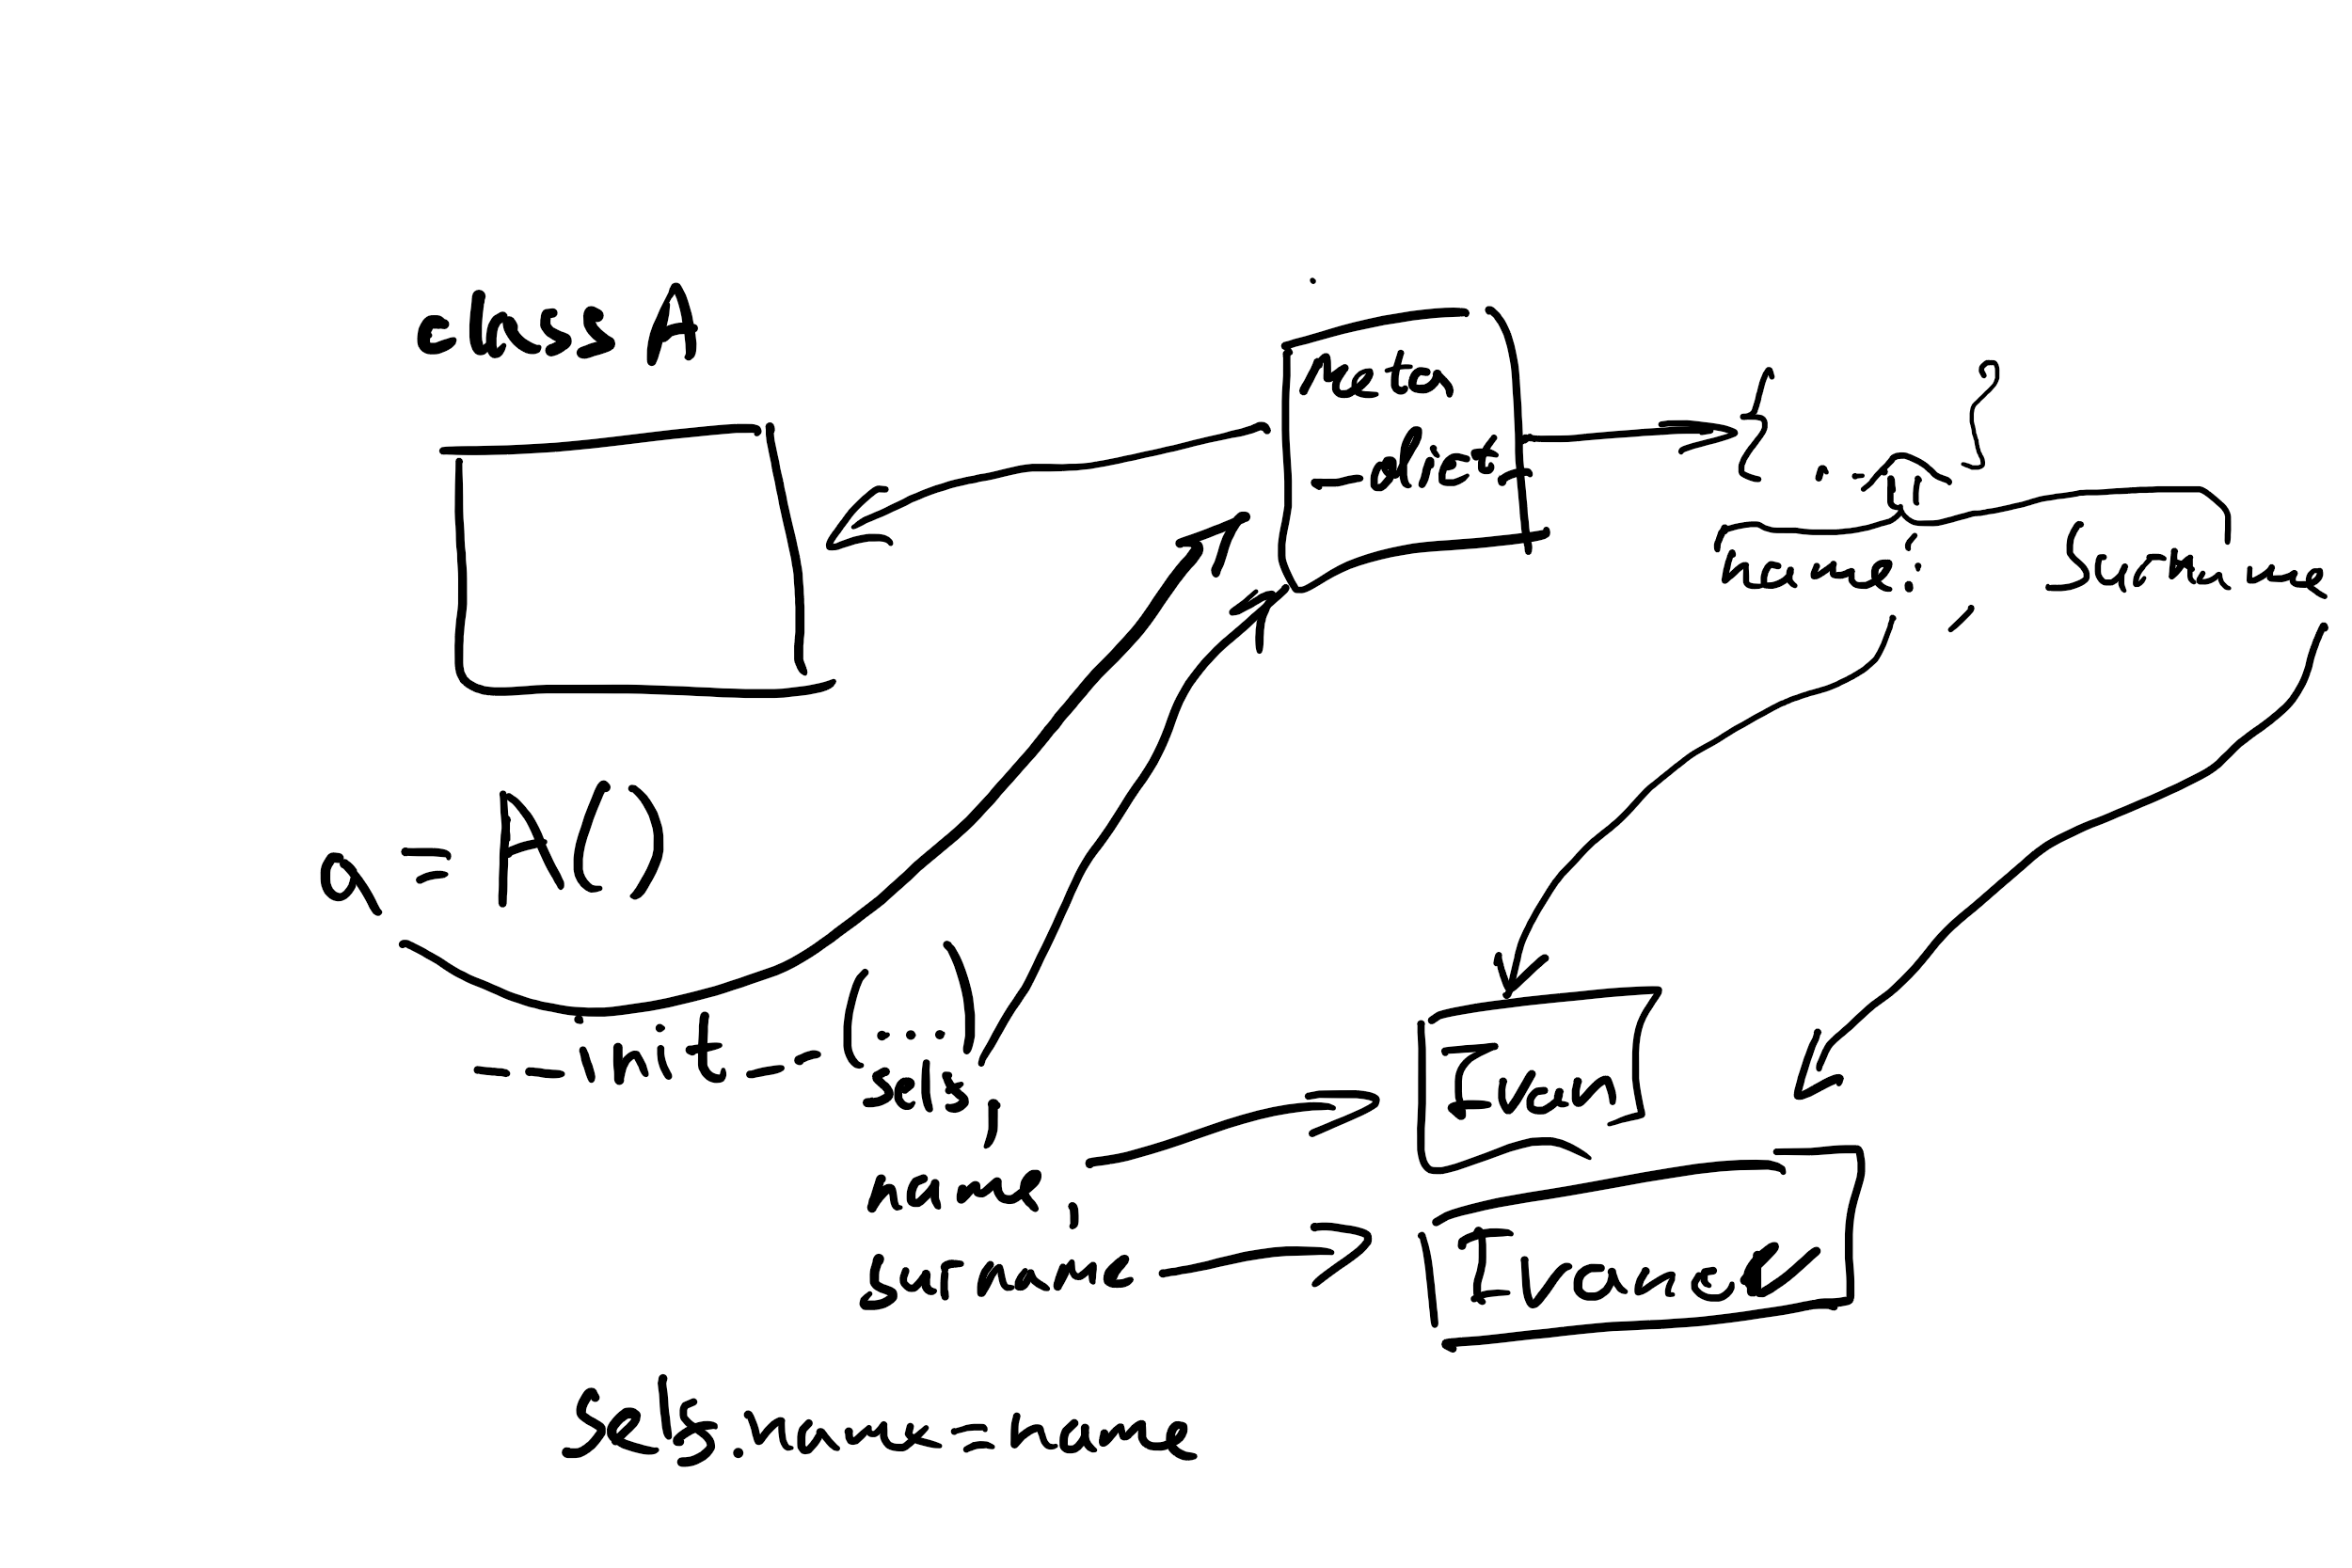 class A
Meta
-dict-
{...}
name:
,
Surname
a = A()
--init-- (...)
self,
name,
surname
Ivan
Ivanov
self.name=name